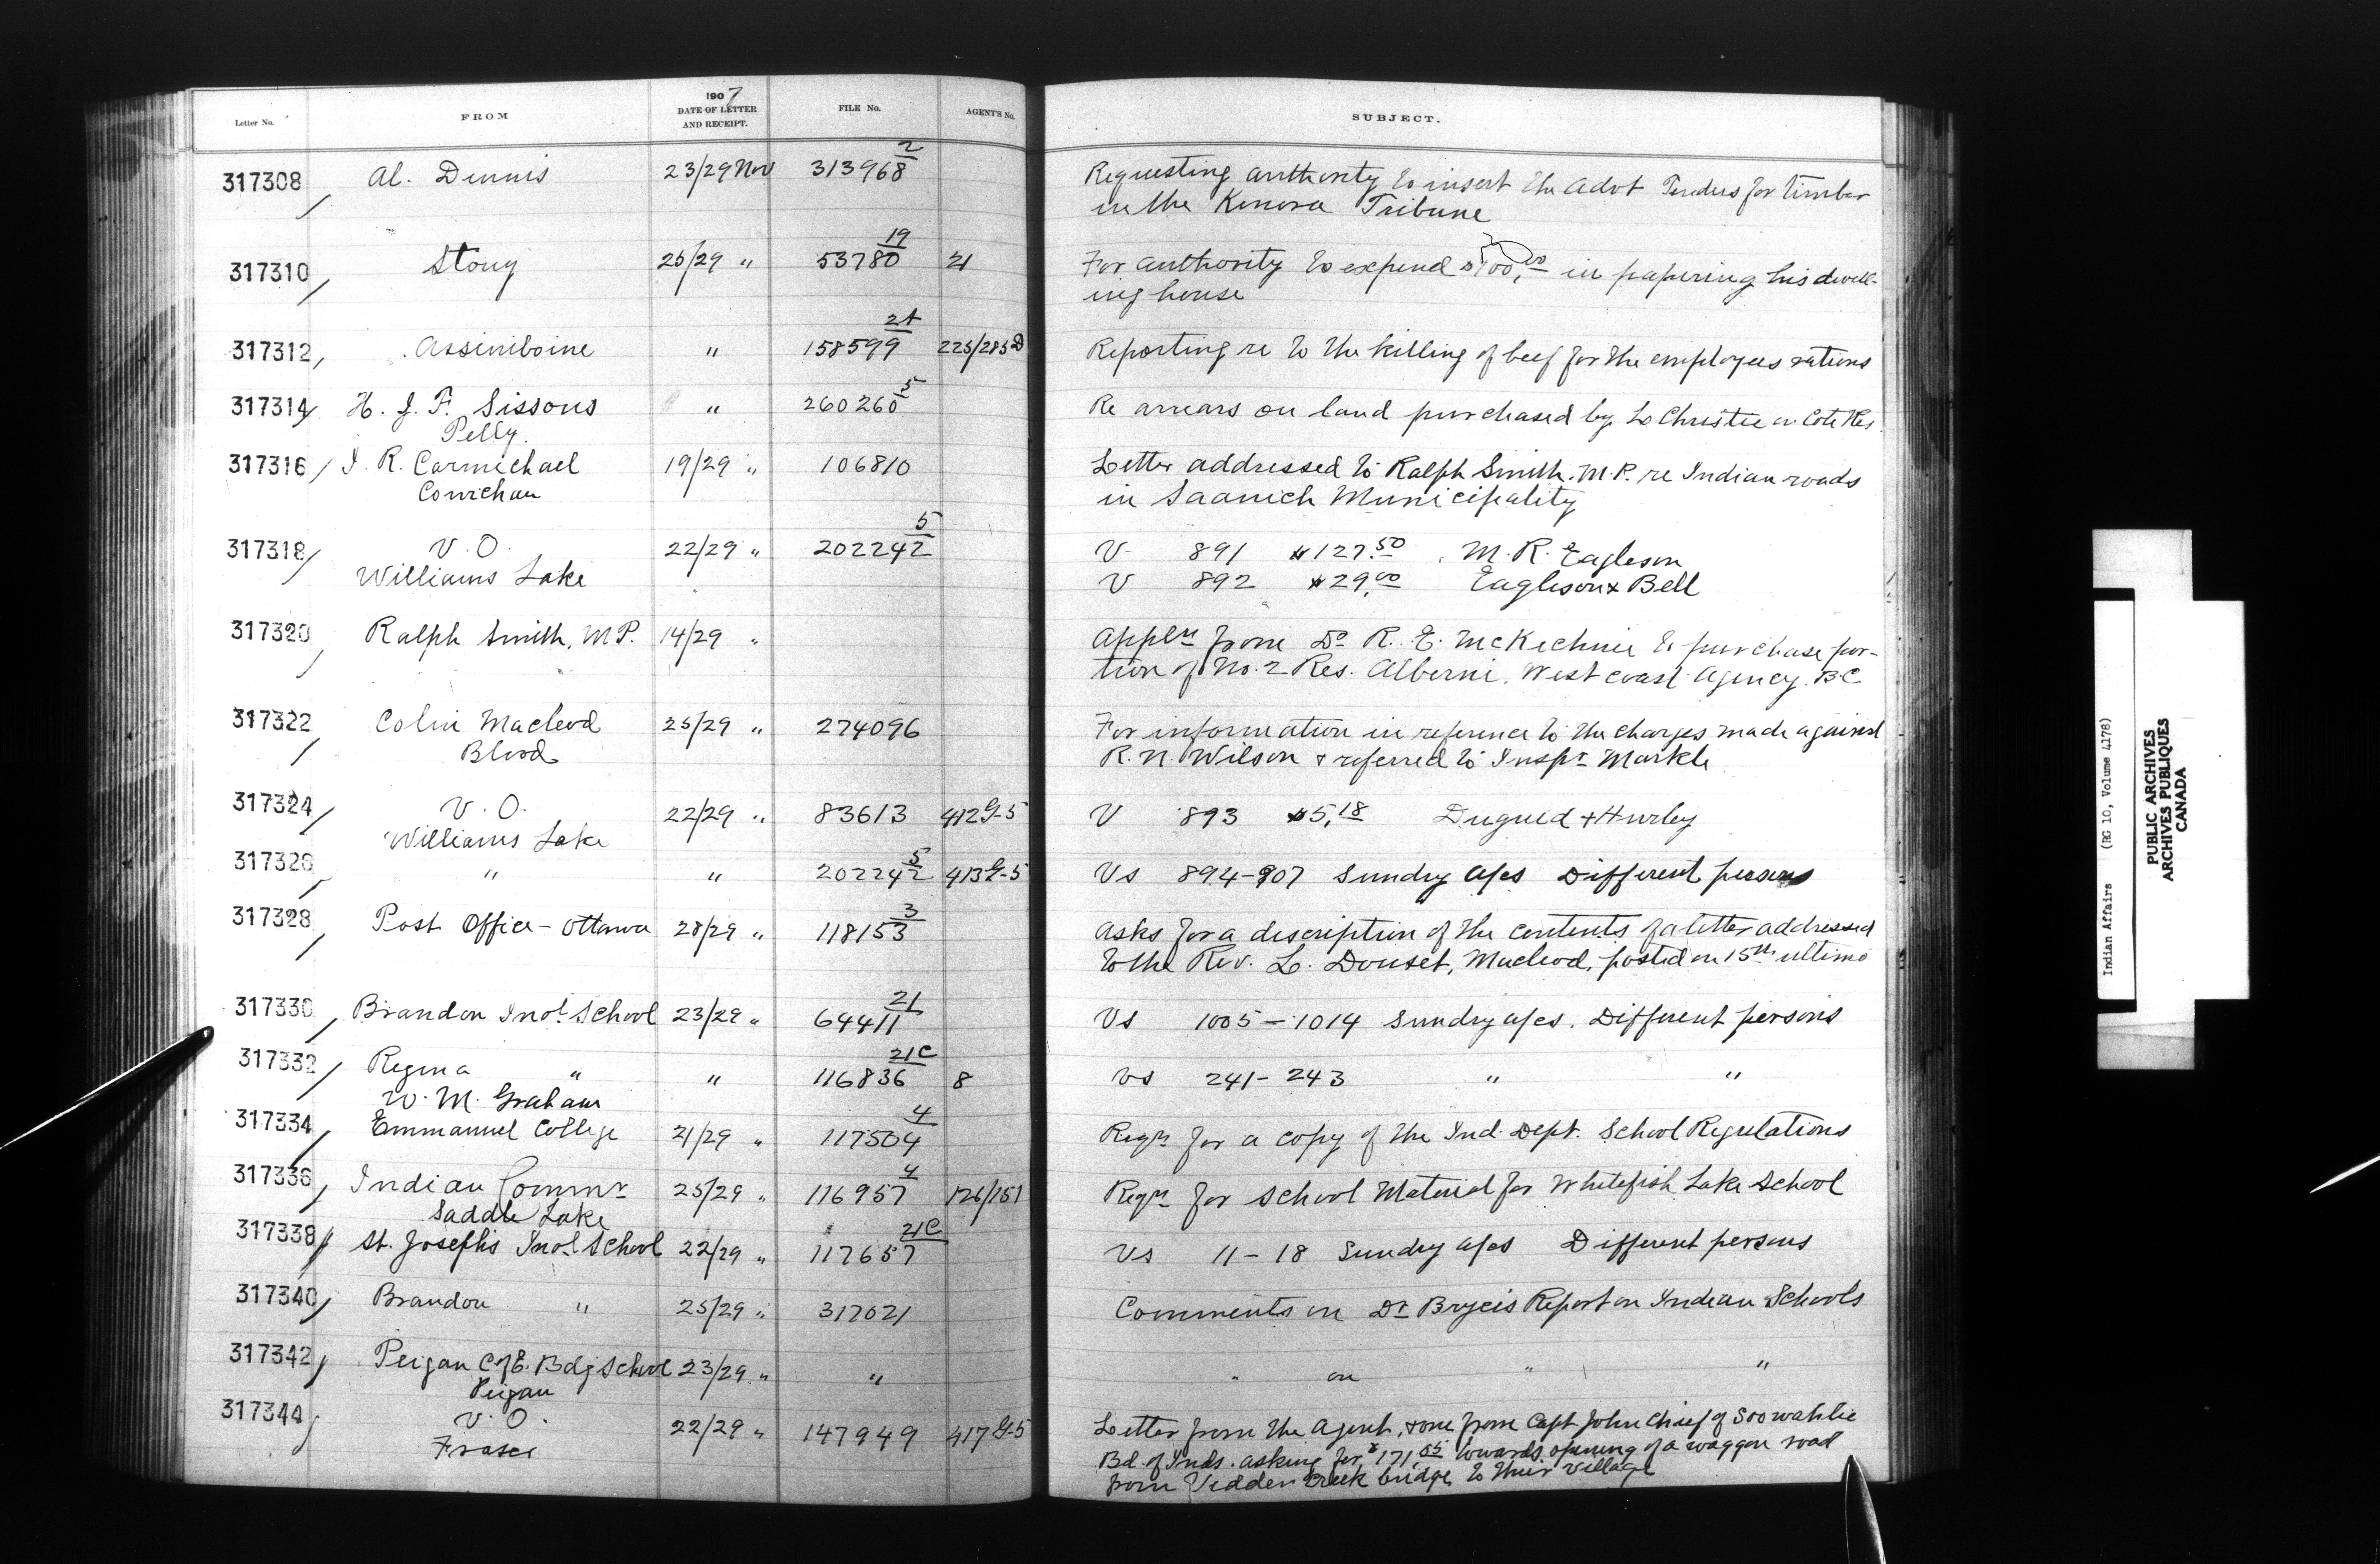 Letter No. FROM 1907 DATE OF LETTER AND RECEIPT. FILE No. AGENT'S No. SUBJECT.
317308 Al. Dennis 23/29 Nov 313968 2 Requesting authority to insert the advt Tenders for timber
in the Kenora Tribune
317310 Stony 25/29 " 53780 19 21 For authority to expend $100.00 in papering his dwell-
ing house
317312 Assiniboine " 158599 2A 225/285 D Reporting re to the killing of beef for the employees rations
317314 H. J. F. Sissons " 260260 5 Re arrears on land purchased by L Christie on Cote Res
Pelly.
317316 J. R. Carmichael 19/29 " 106810 Letter addressed to Ralph Smith. M.P. re Indian roads
Cowichan in Saanich Municipality
317318 V. O. 22/29 " 202242 5 V 891 $127.50 M. R. Eagleson
Williams Lake V 892 $29.00 Eagleson & Bell
317320 Ralph Smith, M.P. 14/29 " Appln from Dr R. E. McKechnie to purchase por-
tion of No. 2 Res. Alberni. West Coast Agency. B.C
317322 Colin Macleod 25/29 " 274096 For information in reference to the charges made against
Blood R. N. Wilson & referred to Inspr Markle
317324 V. O. 22/29 " 83613 412 G-5 V 893 $5.18 Duguid & Hurley
Williams Lake
317326 " " 202242 5 413 G-5 Vs 894-907 Sundry a/cs Different persons
317328 Post Office - Ottawa 28/29 " 118153 3 Asks for a description of the contents of a letter addressed
to the Rev. L. Douset, Macleod, posted on 15th ultimo
317330 Brandon Indl School 23/29 " 64411 21 Vs 1005 - 1014 Sundry a/cs. Different persons
317332 Regina " " 116836 21C 8 Vs 241 - 243 " "
W. M. Graham
317334 Emmanuel College 21/29 " 117504 4 Reqn for a copy of the Ind. Dept. School Regulations
317336 Indian Commr 25/29 " 116957 4 126/151 Reqn for School Material for Whitefish Lake School
Saddle Lake
317338 St. Joseph's Indl School 22/29 " 117657 21C Vs 11 - 18 Sundry a/cs Different persons
317340 Brandon " 25/29 " 317021 Comments on Dr Bryce's Report on Indian Schools
317342 Peigan C of E. Bdg School 23/29 " " " on " "
Peigan
317344 V. O. 22/29 " 147949 417 G-5 Letter from the Agent, & one from Capt John Chief of Soowahlie
Fraser Bd. of Inds. asking for $171.55 towards opening of a waggon road
from Vedder Creek bridge to their village
Indian Affairs (RG 10, Volume 4178)
PUBLIC ARCHIVES
ARCHIVES PUBLIQUES
CANADA